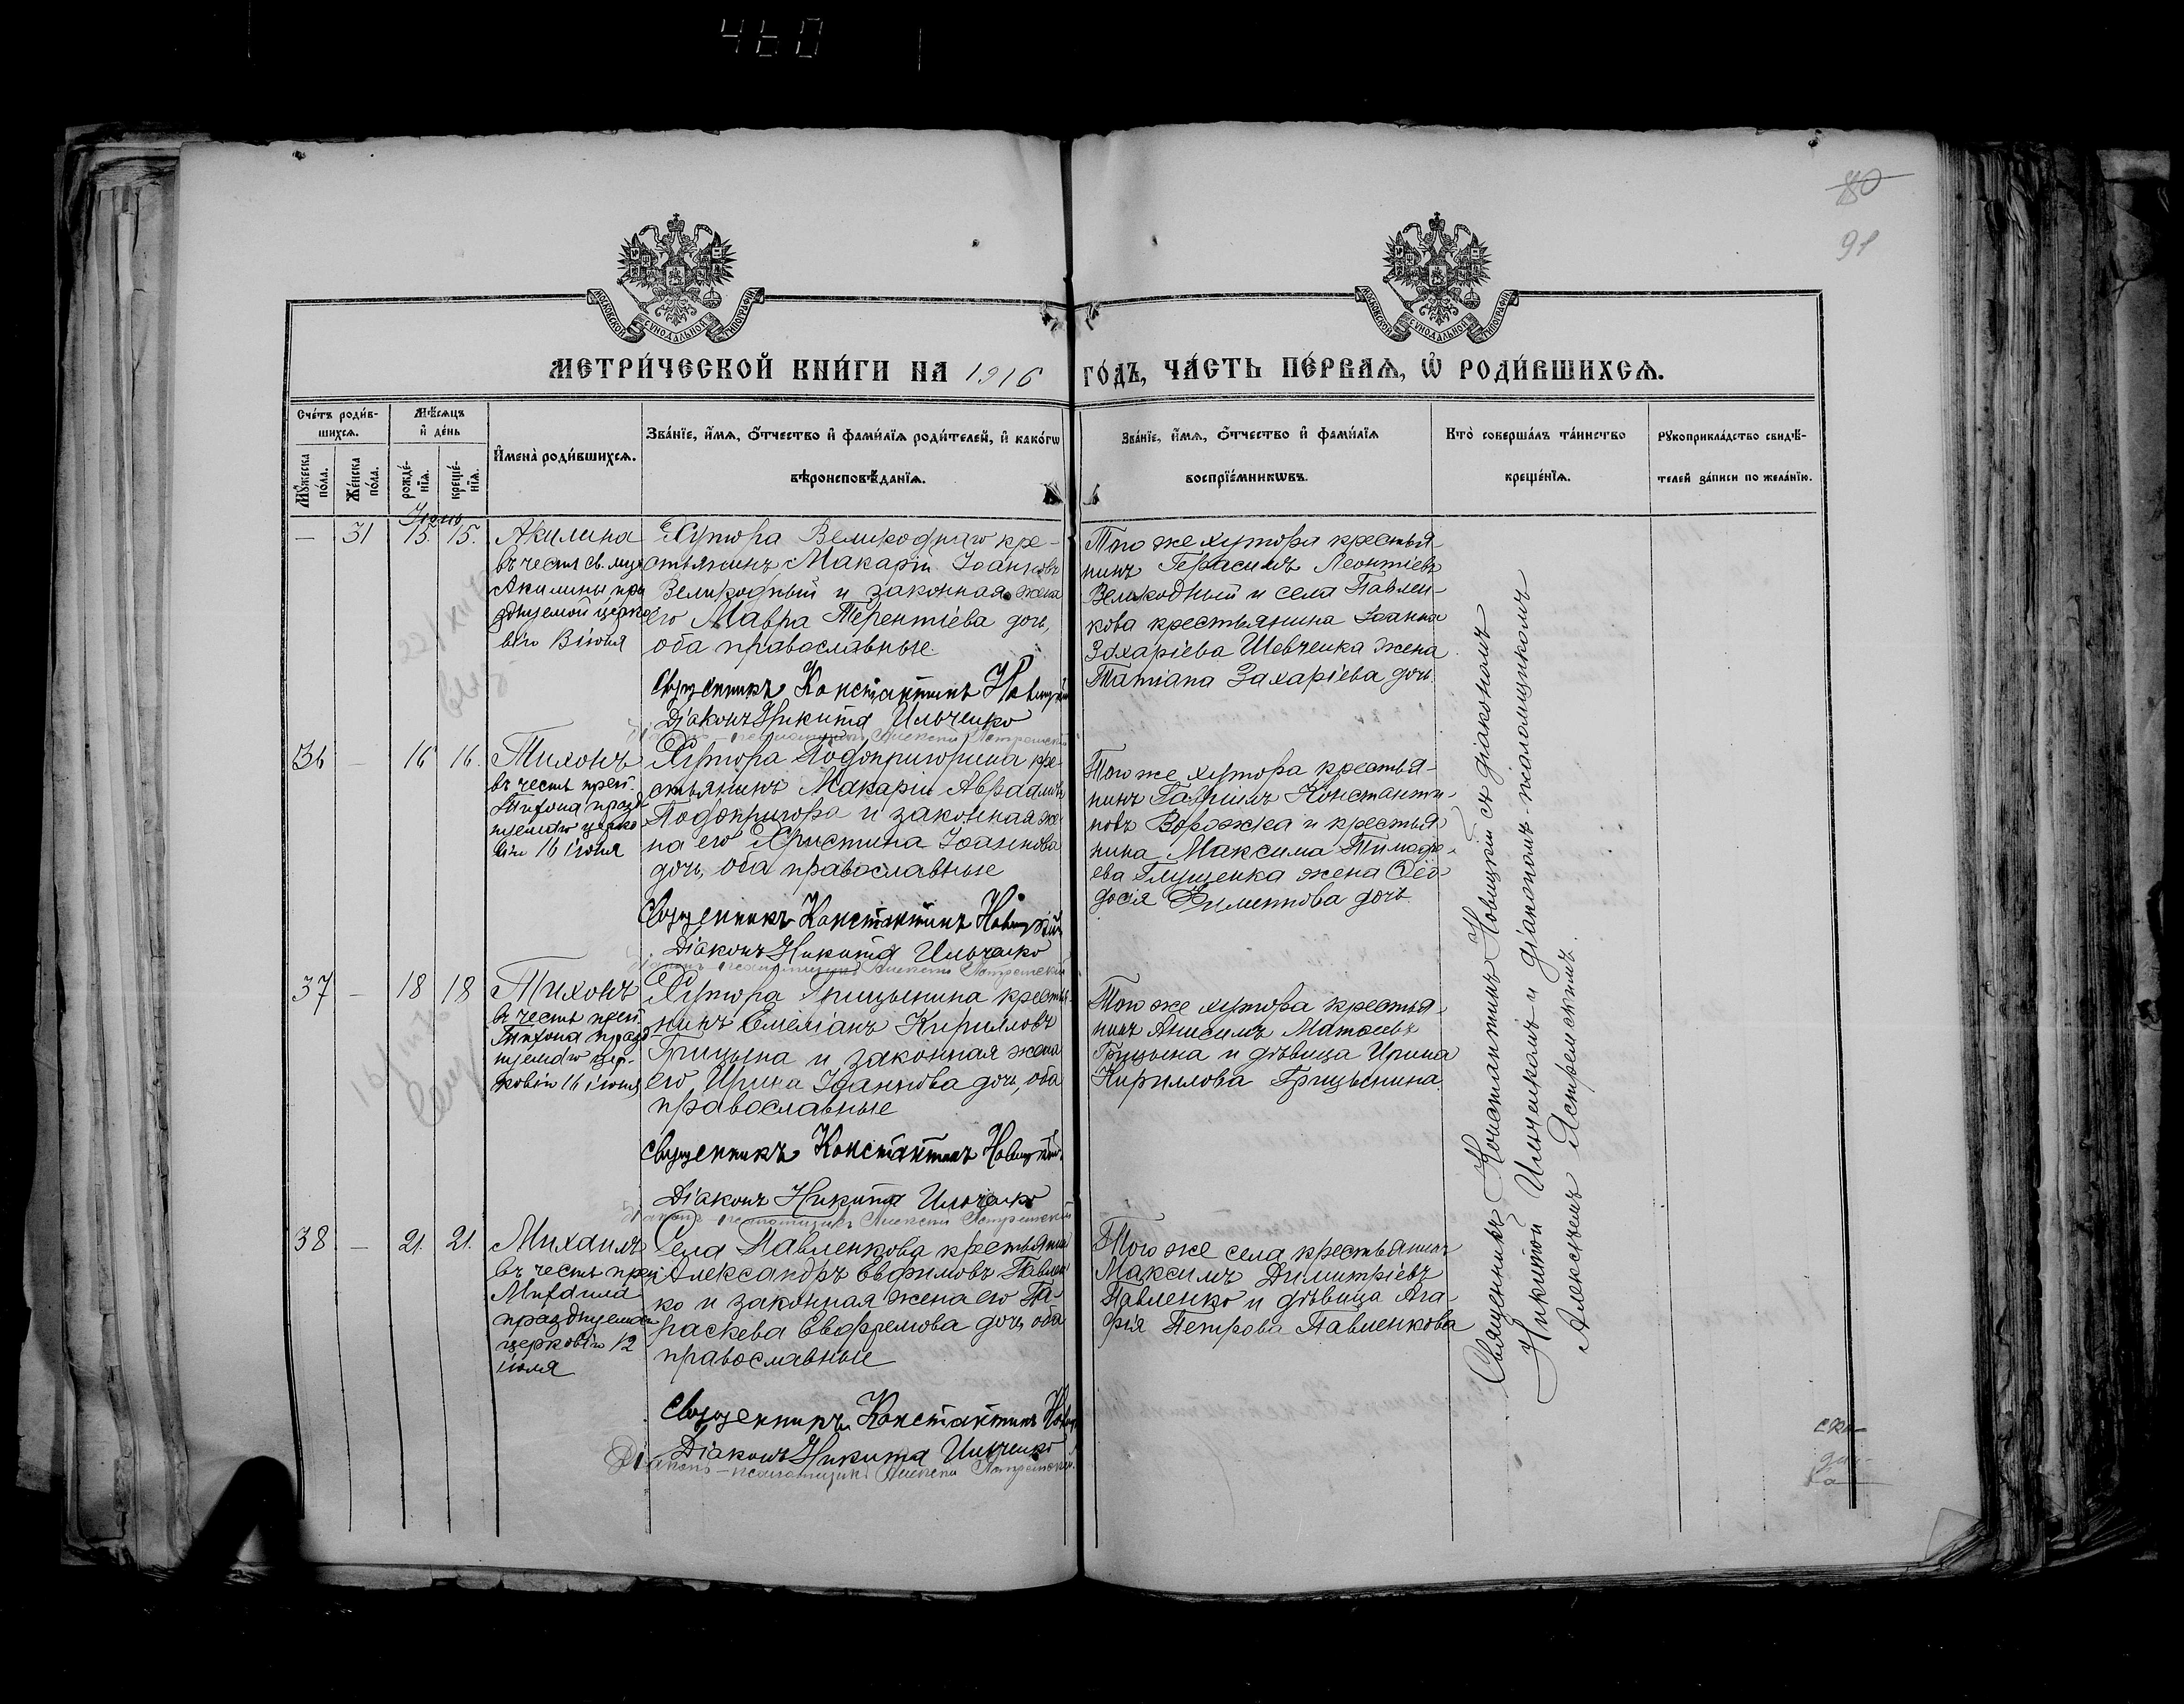 460
80
91
МОСКОВСКОЙ СѴНОДАЛЬНОЙ ТИПОГРАФІИ
МОСКОВСКОЙ СѴНОДАЛЬНОЙ ТИПОГРАФІИ
МЕТРИ́ЧЕСКОЙ КНИ́ГИ НА 1916 ГО́ДЪ, ЧА́СТЬ ПЕ́РВАѦ, Ѡ҆ РОДИ́ВШИХСѦ.
Сче́тъ роди́в-
шихсѧ.
Мꙋ́жеска по́ла.
Же́нска по́ла.
Мѣ́сѧцъ
и҆ де́нь
рожде́-
нїѧ.
креще́-
нїѧ.
И҆мена̀ роди́вшихсѧ.
Зва́нїе, и҆́мѧ, ѻ҆́тчество и҆ фами́лїѧ роди́телей, и҆ како́гѡ
вѣроисповѣ́данїѧ.
Зва́нїе, и҆́мѧ, ѻ҆́тчество и҆ фами́лїѧ
воспрїе́мникѡвъ.
Кто̀ соверша́лъ та́инство
креще́нїѧ.
Рꙋкоприкла́дство свидѣ́-
телей за́писи по жела́нїю.
Іюнь
— 31 15. 15.
Акилина
въ честь св. муц
Акилины пра
зднуемой церко
вію 13 іюня
Хутора Великоднаго кре-
стьянинъ Макарій Іоанновъ
Великодный и законная жена
его Мавра Терентіева дочь,
оба православные.
Священникъ Константинъ Новицкій
Діаконъ Никита Ильченко
Діаконъ-псаломщикъ Алексѣй Ястремскій
Того же хутора крестья-
нинъ Герасимъ Леонтіевъ
Великодный и села Павлен-
кова крестьянина Іоанна
Захаріева Шевченка жена
Татіана Захаріева дочь.
36 — 16 16.
Тихонъ
въ честь преп.
Тихона празд
нуемаго церко
вію 16 іюня
Хутора Подопригорина кре-
стьянинъ Макарій Авраамовъ
Подопригора и законная же-
на его Христина Іоаннова
дочь, оба православные
Священникъ Константинъ Новицкій
Діаконъ Никита Ильченко
Діаконъ-псаломщикъ Алексѣй Ястремскій
Того же хутора крестья-
нинъ Гавріилъ Константи-
новъ Ворожка и крестья-
нина Максима Тимофе-
ева Глущенка жена Ѳео-
досія Филиппова дочь.
37 — 18 18
Тихонъ
въ честь преп.
Тихона празд
нуемаго цер-
ковію 16 іюня
Хутора Грицынина крестья-
нинъ Емеліанъ Кирилловъ
Грицына и законная жена
его Ирина Іоаннова дочь, оба
православные
Священникъ Константинъ Новицкій
Діаконъ Никита Ильченко
Діаконъ-псаломщикъ Алексѣй Ястремскій
Того же хутора крестья-
нинъ Анисимъ Матѳеевъ
Грицына и дѣвица Ирина
Кириллова Грицынина.
38 — 21. 21.
Михаилъ
въ честь преп
Михаила
празднуемаго
церковію 12
іюля
Села Павленкова крестьянинъ
Александръ Евфимовъ Павлен
ко и законная жена его Па-
раскева Евфремова дочь, оба
православные
Священникъ Константинъ Нов
Діаконъ Никита Ильченко
Діаконъ-псаломщикъ Алексѣй Ястремскій
Того же села крестьянинъ
Максимъ Димитріевъ
Павленко и дѣвица Ага-
фія Петрова Павленкова
Священникъ Константинъ Новицкій съ діакономъ
Никитой Ильченкомъ и діакономъ-псаломщикомъ
Алексѣемъ Ястремскимъ.